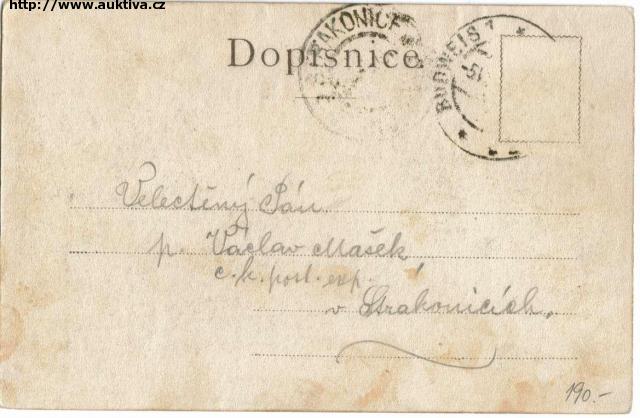 http://www.auktiva.cz
Dopisnice
TAKONICE
BUDWEIS 1
Velectěný Pán
p. Václav Mašek,
c. k. post. exp.
v Strakonicích,
190.-